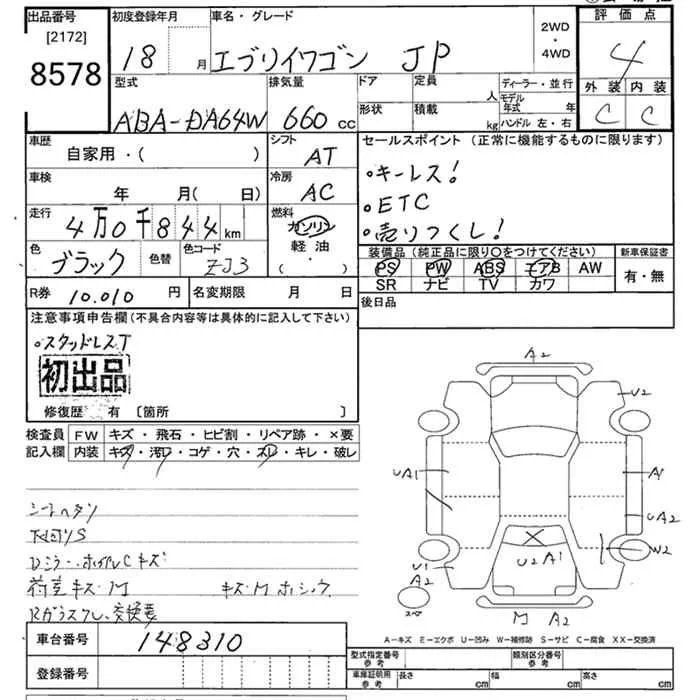 出品番号
[2172]
8578
初度登録年月
18 月
車名・グレード
エブリイワゴン JP
2WD
・
4WD
評価点
4
外装 内装
C C
型式
ABA-DA64W
排気量
660 cc
ドア
形状
定員
人
積載
kg
ディーラー・並行
モデル年式 年
ハンドル 左・右
車歴
自家用・( )
シフト
AT
車検
年 月( 日)
冷房
AC
走行
4万0千844km
燃料
ガソリン
軽油
( ・ )
色
ブラック
色替
色コード
ZJ3
R券 10.010 円
名変期限 月 日
セールスポイント(正常に機能するものに限ります)
・キーレス!
・ETC
・売りつくし!
装備品(純正品に限り○をつけてください)
PS PW ABS エアB AW
SR ナビ TV カワ
新車保証書
有・無
後日品
注意事項申告欄(不具合内容等は具体的に記入して下さい)
・スタッドレスT
初出品
修復歴 有 〔箇所 〕
検査員
記入欄
FW キズ・飛石・ヒビ割・リペア跡・×要
内装 キズ・汚レ・コゲ・穴・スレ・キレ・破レ
シートヘタリ
下回りS
Dミラー・ホイルCキズ
荷室キズ・M
Rガラスクレ、交換要
A2
U2
UA1
A1
UA2
U2A1
W2
U1
A2
スペア
M A2
A-キズ E-エクボ U-凹み W-補修跡 S-サビ C-腐食 XX-交換済
車台番号 148310
登録番号
型式指定番号
参考
類別区分番号
参考
車庫証明用
参考
長さ cm
幅 cm
高さ cm